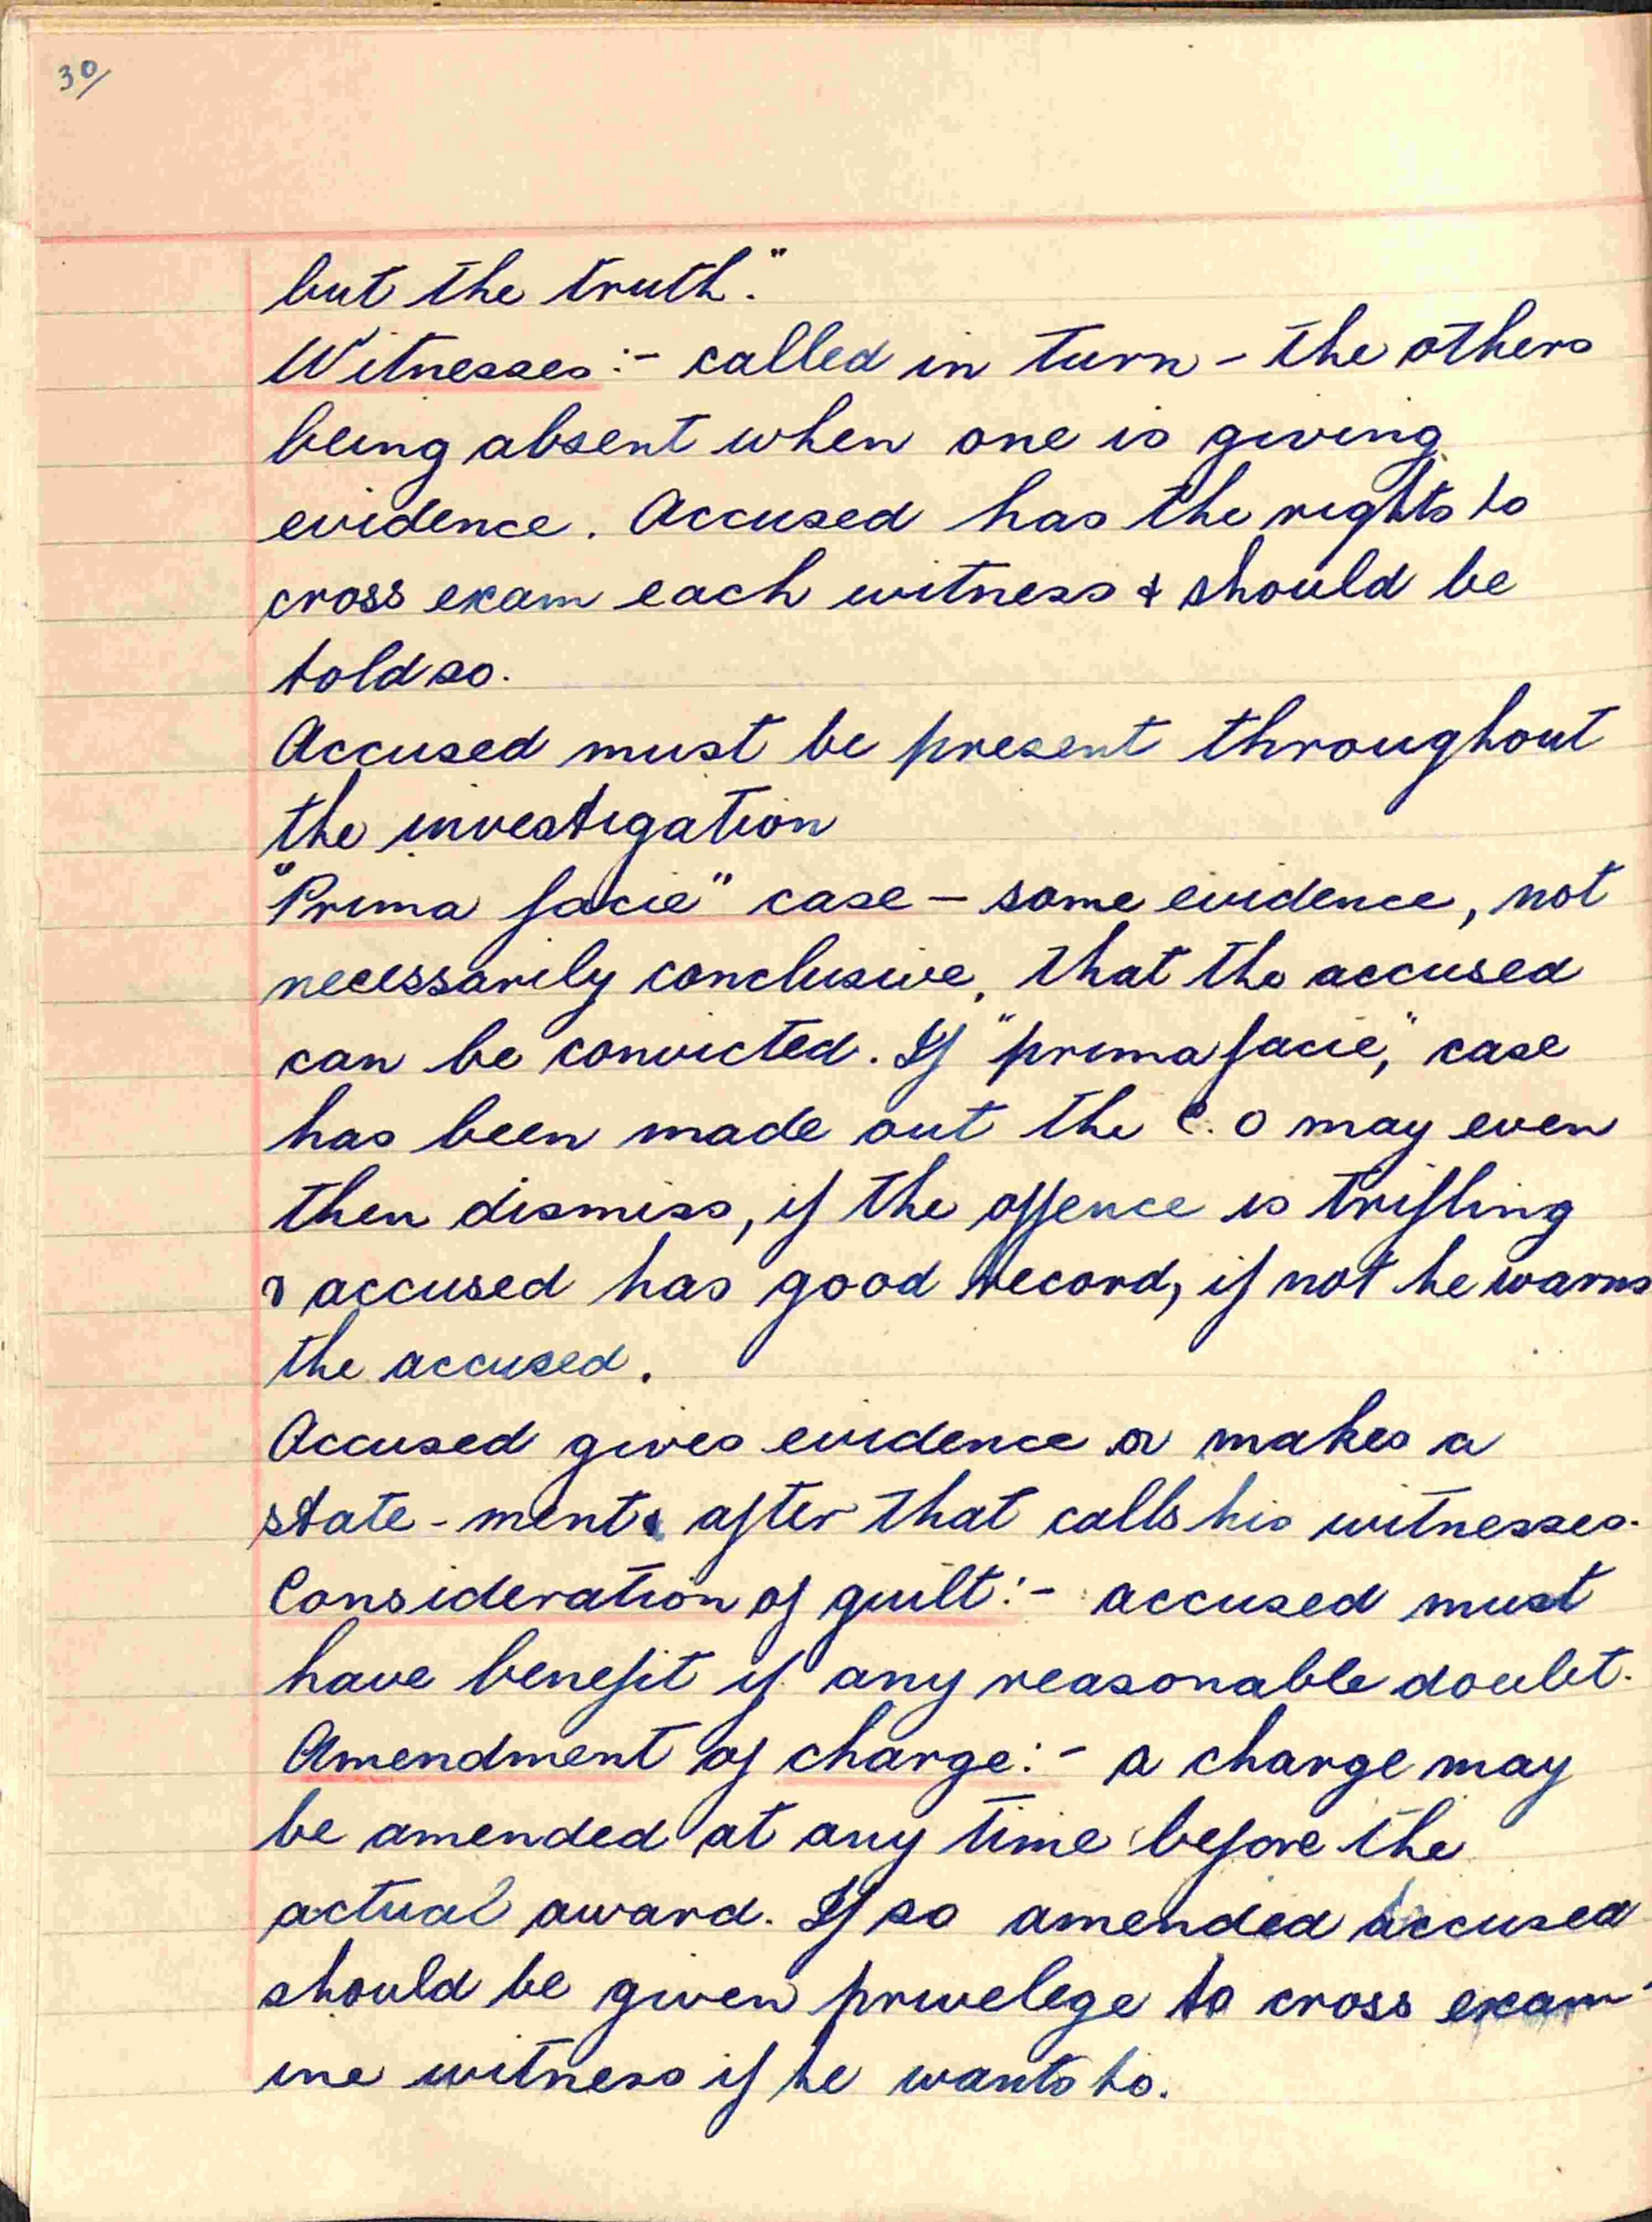 30/
but the truth."
Witnesses :- called in turn - the others
being absent when one is giving
evidence. Accused has the rights to
cross exam each witness & should be
told so.
Accused must be present throughout
the investigation
"Prima facie" case - some evidence, not
necessarily conclusive, that the accused
can be convicted. If "prima facie," case
has been made out the C.O may even
then dismiss, if the offence is trifling
& accused has good record, if not he warns
the accused.
Accused gives evidence or makes a
state-ment & after that calls his witnesses.
Consideration of guilt :- accused must
have benefit if any reasonable doubt.
Amendment of charge :- a charge may
be amended at any time before the
actual award. If so amended accused
should be given privelege to cross exam-
ine witness if he wants to.